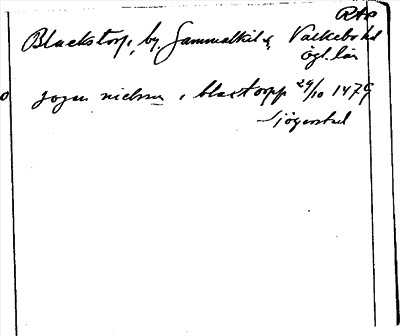 RAp
Blackstorp, by, Gammalkil s, Valkebo hd
ögl. län
o jogan nielssen i blastorpp 29/10 1479
Sjögerstad